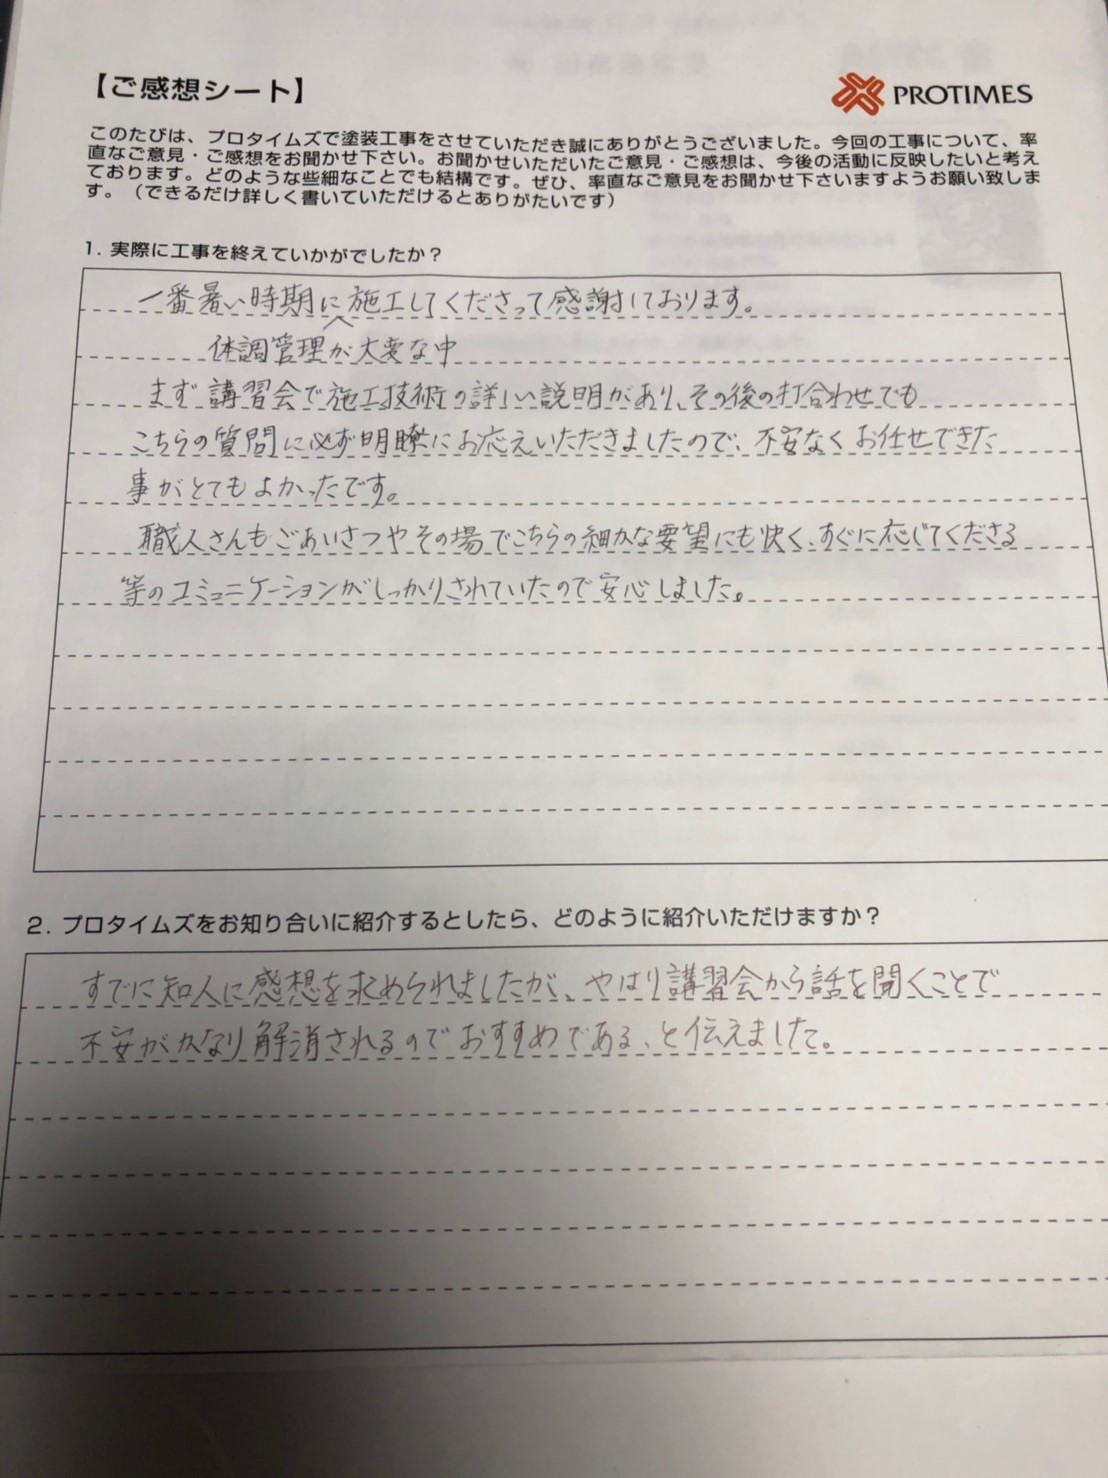 【ご感想シート】
PROTIMES
このたびは、プロタイムズで塗装工事をさせていただき誠にありがとうございました。今回の工事について、率
直なご意見・ご感想をお聞かせ下さい。お聞かせいただいたご意見・ご感想は、今後の活動に反映したいと考え
ております。どのような些細なことでも結構です。ぜひ、率直なご意見をお聞かせ下さいますようお願い致しま
す。（できるだけ詳しく書いていただけるとありがたいです）
1. 実際に工事を終えていかがでしたか？
一番暑い時期に施工してくださって感謝しております。
体調管理が大変な中
まず講習会で施工技術の詳しい説明があり、その後の打合わせでも
こちらの質問に必ず明瞭にお応えいただきましたので、不安なくお任せできた
事がとてもよかったです。
職人さんもごあいさつやその場でこちらの細かな要望にも快く、すぐに応じてくださる
等のコミュニケーションがしっかりされていたので安心しました。
2. プロタイムズをお知り合いに紹介するとしたら、どのように紹介いただけますか？
すでに知人に感想を求められましたが、やはり講習会から話を聞くことで
不安がかなり解消されるのでおすすめである、と伝えました。